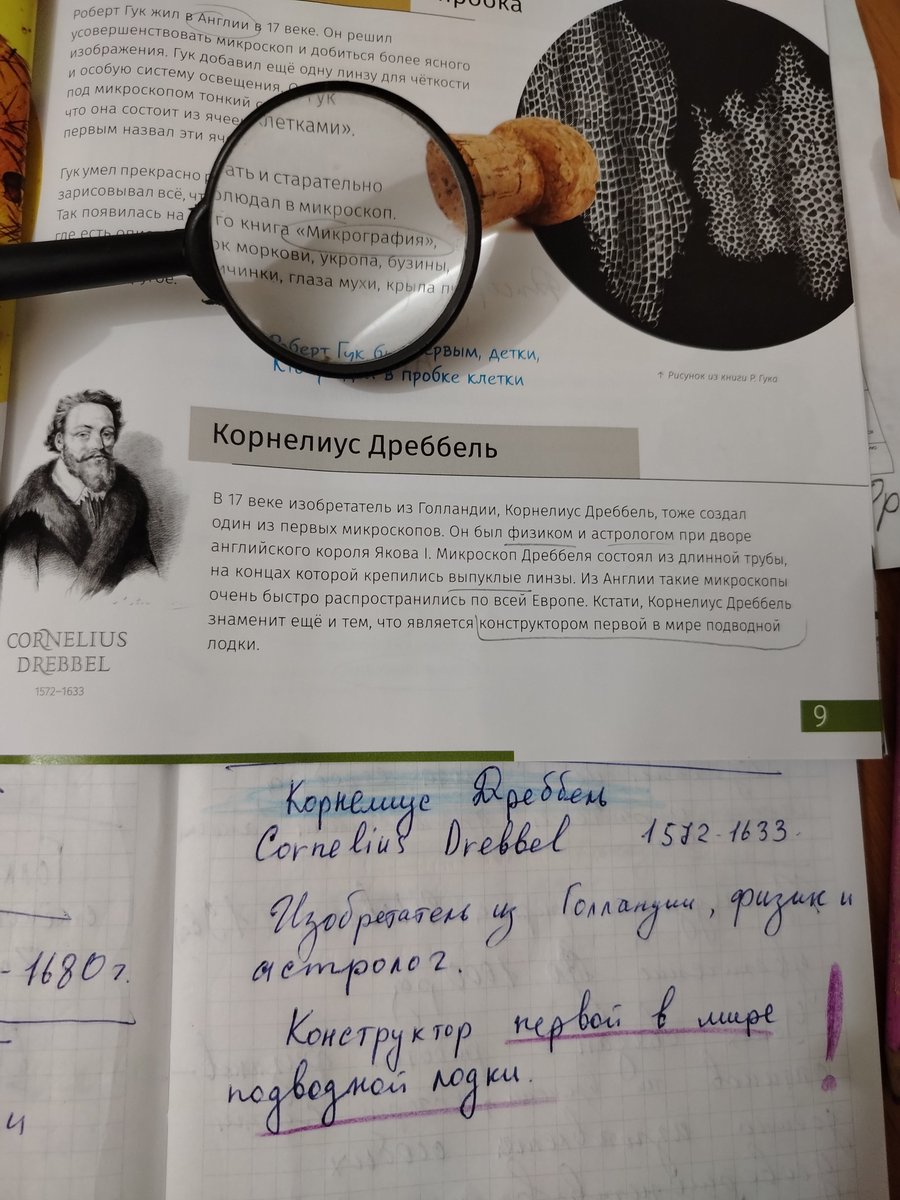 пробка
Роберт Гук жил в Англии в 17 веке. Он решил
усовершенствовать микроскоп и добиться более ясного
изображения. Гук добавил ещё одну линзу для чёткости
и особую систему освещения. Гук
под микроскопом тонкий
что она состоит из ячеек «клетками».
первым назвал эти
Гук умел прекрасно и старательно
зарисовывал всё, в микроскоп.
Так появилась на книга «Микрография»,
где есть моркови, укропа, бузины,
глаза мухи, крыла
Роберт Гук первым, детки,
в пробке клетки
↑ Рисунок из книги Р. Гука
Корнелиус Дреббель
В 17 веке изобретатель из Голландии, Корнелиус Дреббель, тоже создал
один из первых микроскопов. Он был физиком и астрологом при дворе
английского короля Якова I. Микроскоп Дреббеля состоял из длинной трубы,
на концах которой крепились выпуклые линзы. Из Англии такие микроскопы
очень быстро распространились по всей Европе. Кстати, Корнелиус Дреббель
знаменит ещё и тем, что является конструктором первой в мире подводной
лодки.
CORNELIUS
DREBBEL
1572–1633
9
Корнелиус Дреббель
Cornelius Drebbel 1572-1633.
Изобретатель из Голландии, физик и
астролог.
- 1680 г.
Конструктор первой в мире !
подводной лодки.
и